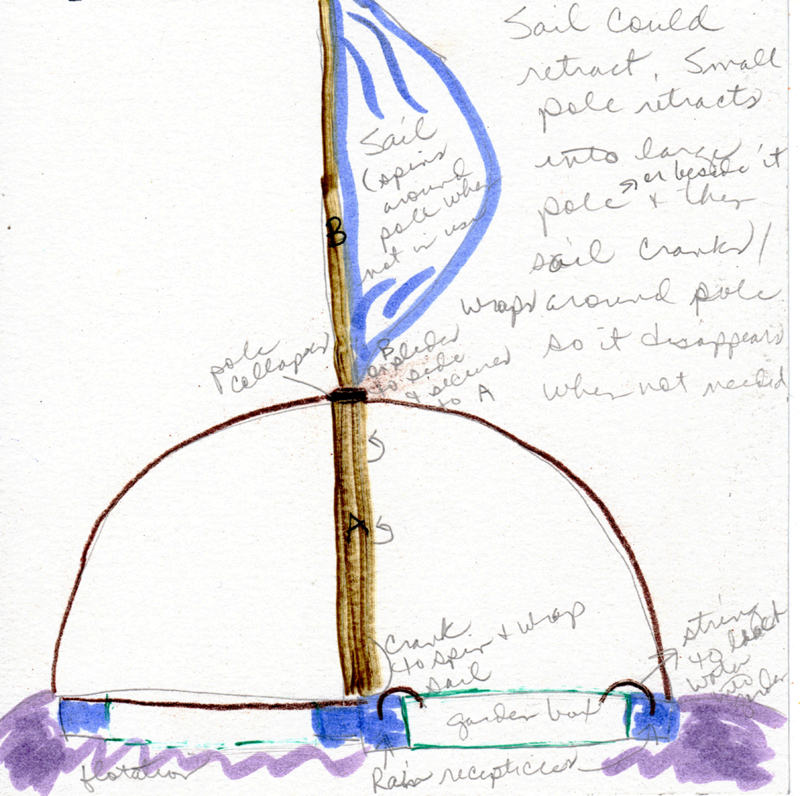 Sail could
retract. Small
pole retracts
into large
or beside it
pole & then
sail cranks/
wraps around pole
so it disappears
when not needed
Sail
(spins
around
pole when
not in use
B
pole
collapses
B
to side
& secured
to A
A
crank
to spin & wrap
sail
string
to
water
into
garden
garden box
flotation
Rain recepticles